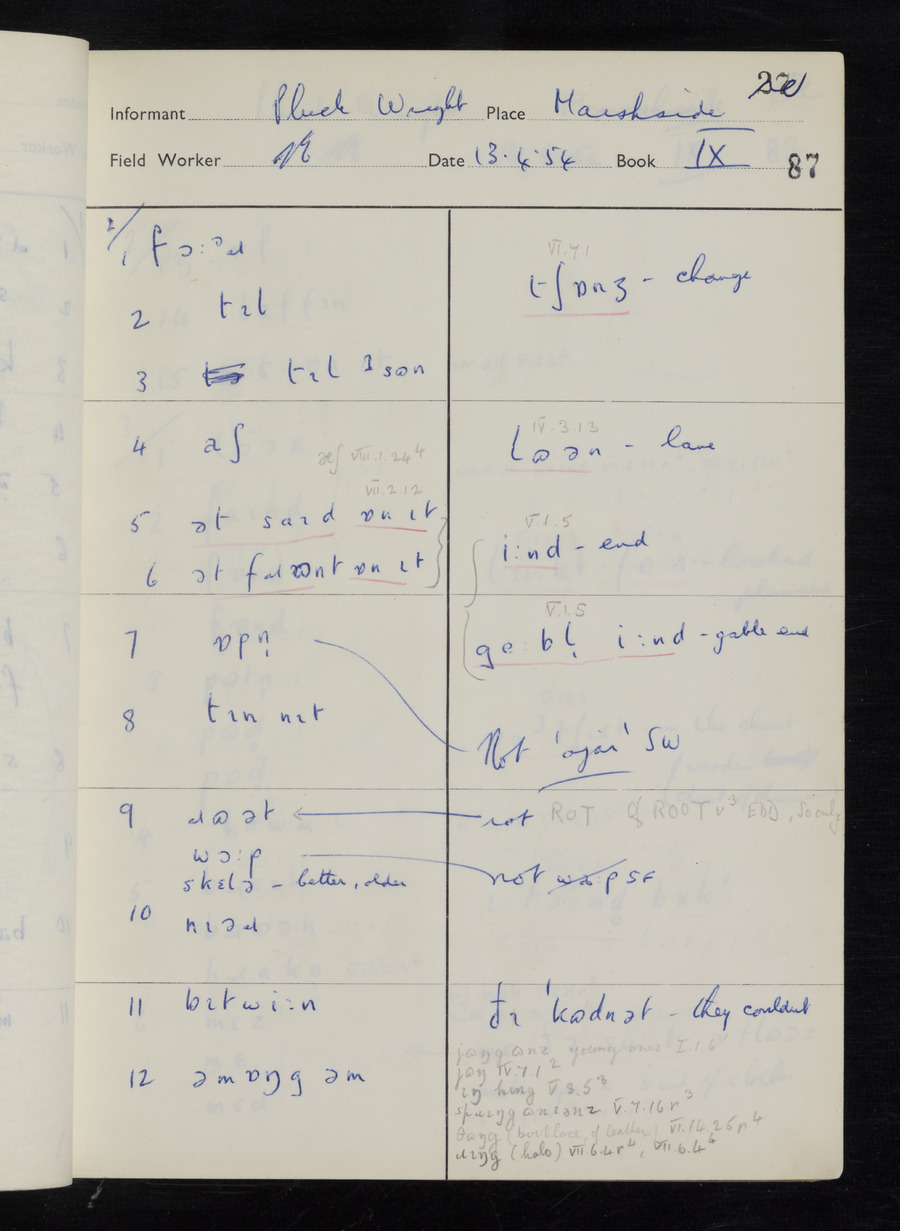 Informant Pluck Wright Place Marshside
Field Worker Date 13·4·54 Book IX 87
2/1 fɔ:ᵊɹd
2 tɪl
3 tɪl ɪ sɒn
4 aʃ
æʃ VIII.1.24⁴
VII.2.12
5 ət saɪd ɒn ɪt
6 ət fɹɷnt ɒn ɪt
7 ɒpn̩
8 tɪn nɪt
9
wɔ:p
skɛlə - better, older
10 nɪəɹ
11 bɪtwi:n
12 əmɒŋg əm
VI.7.1
tʃɒnʒ - change
IV.3.13
lɷən - lane
V.1.5
i:nd - end
V.1.5
ge:bl̩ i:nd - gable end
Not 'ajar' SW
rot ROT Cf ROOT v³ EDD, So only
not
ðɪ ˈkɷdnət - they couldnt
jɷŋg ɷnz young ones I.1.6
jɷŋ IV.7.1²
ɪŋ hung V.3.5³
V.7.16r³
θɒŋg (bootlace, of leather) VI.14.25r⁴
ɹɪŋg (halo) VII.6.4r⁴, VII.6.4⁴